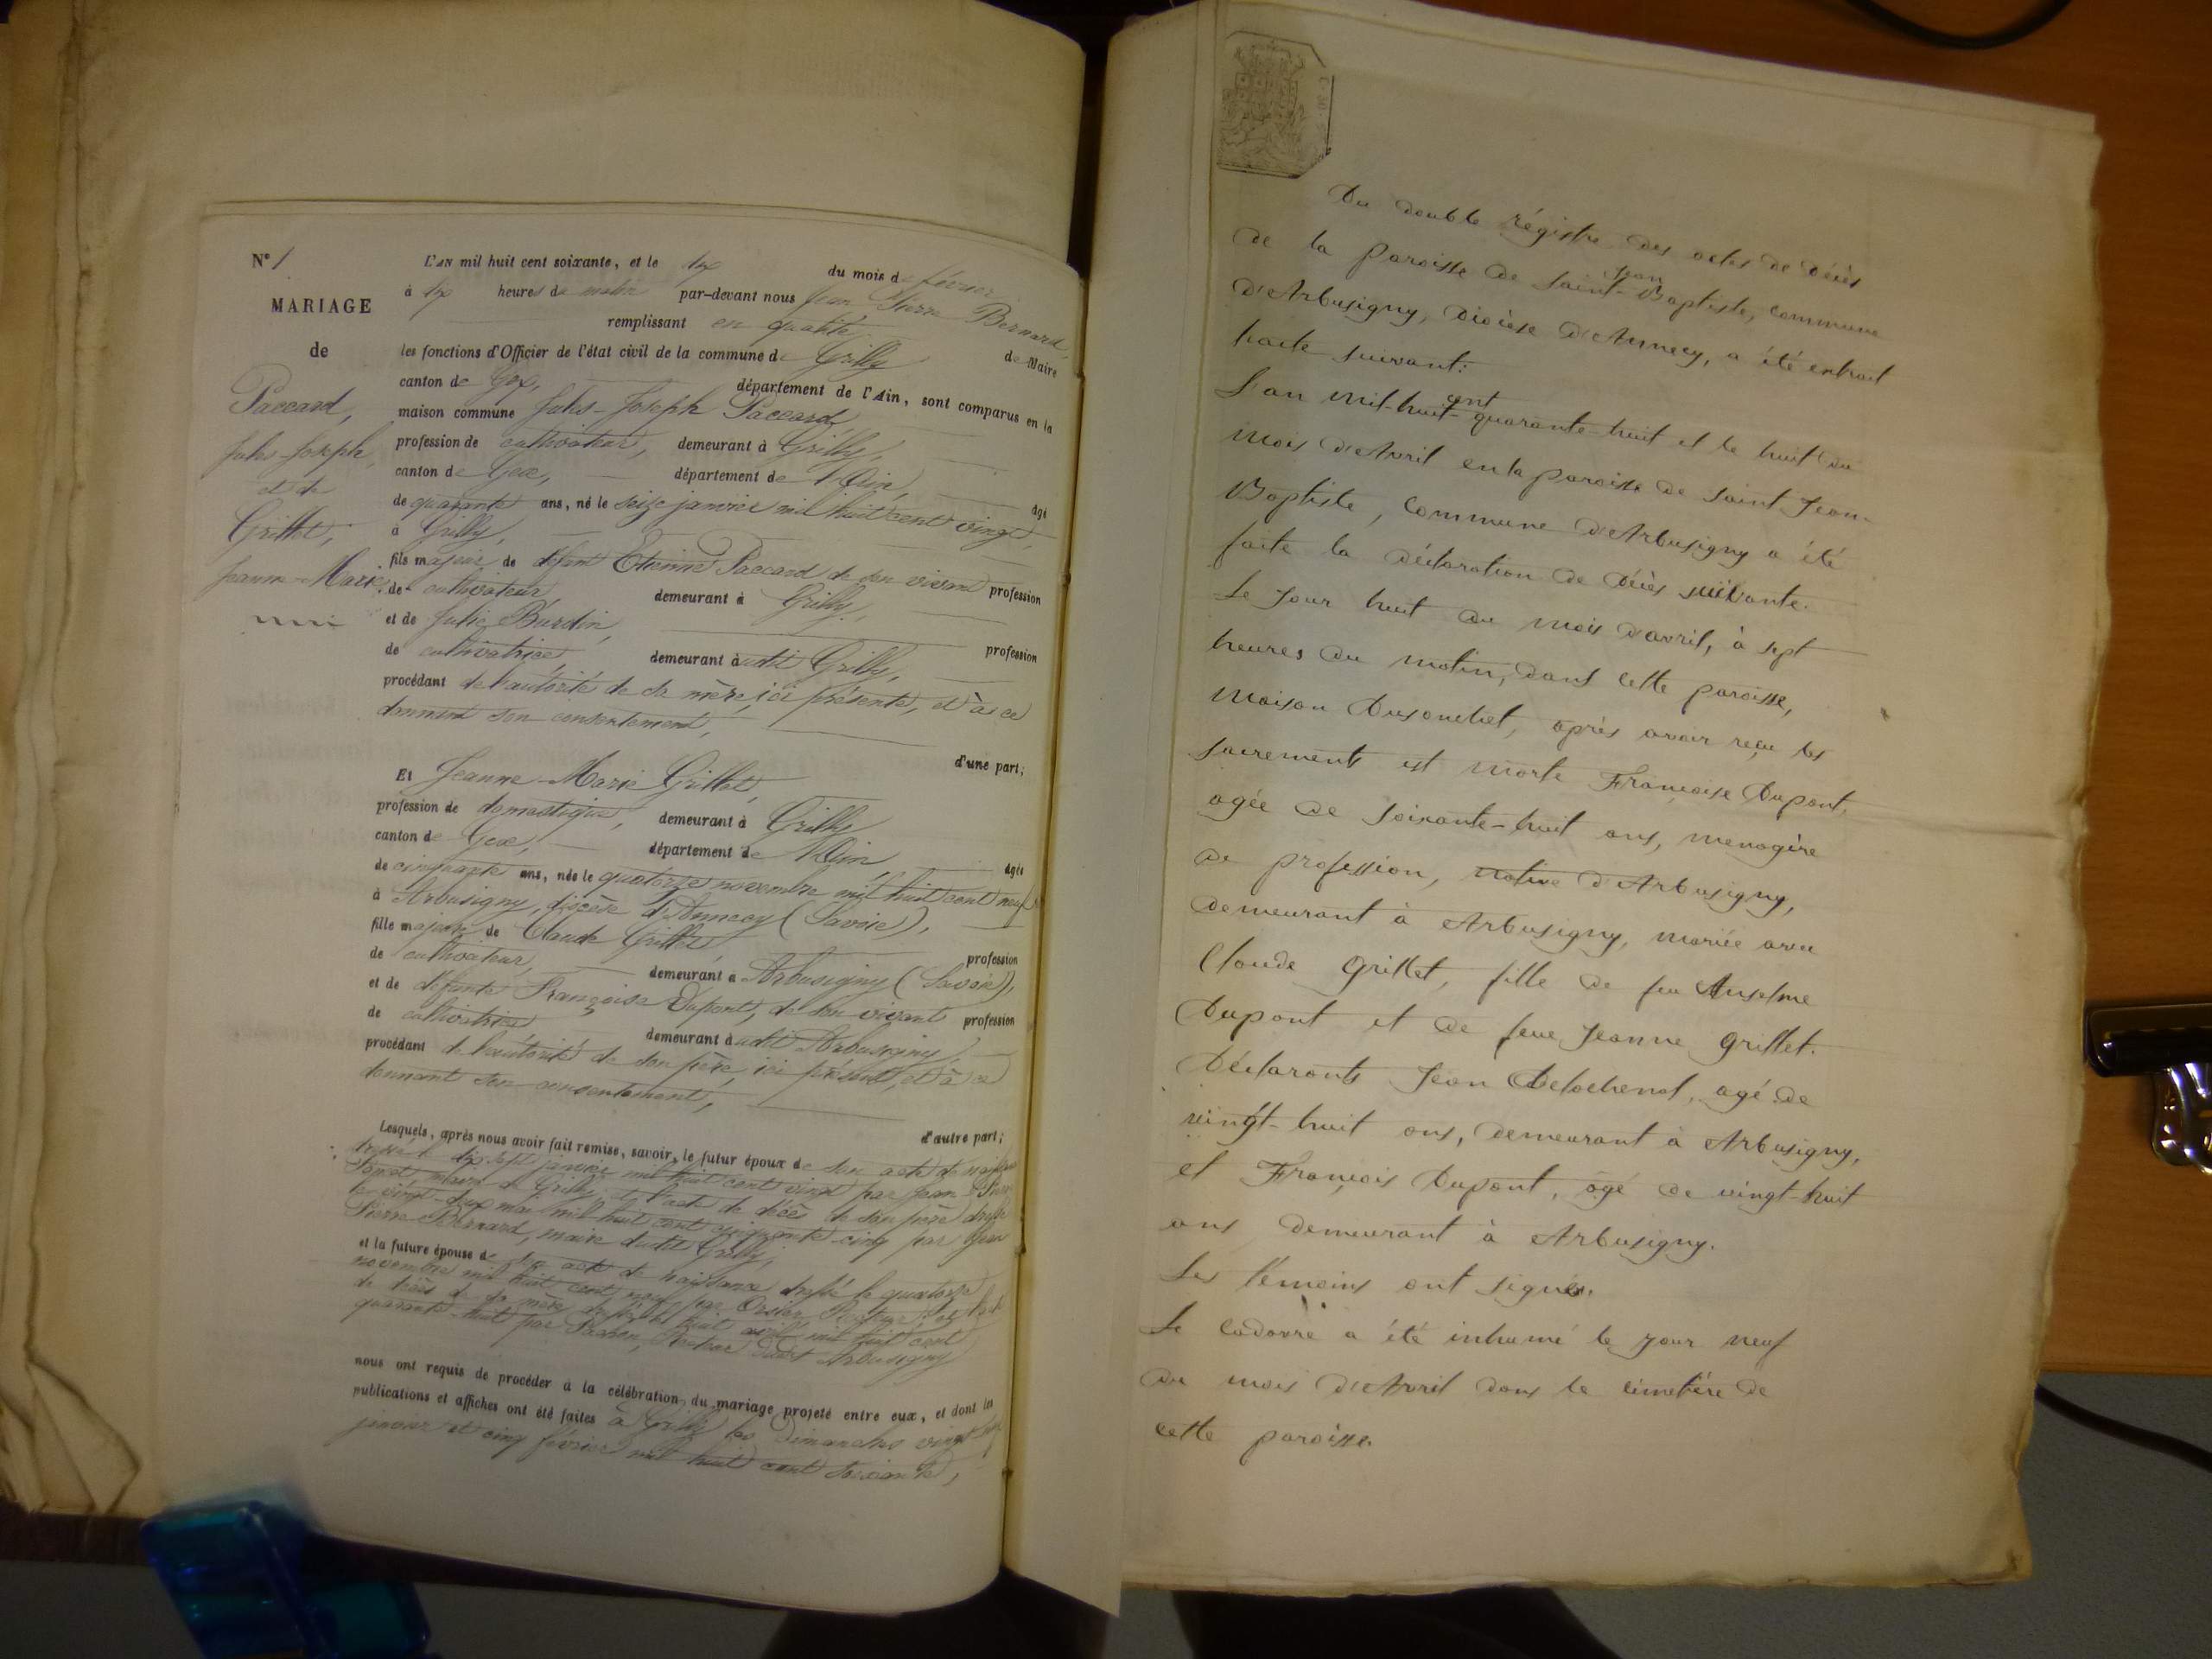 N° 1
MARIAGE
de
Paccard,
Jules-Joseph,
et de
Grillet,
Jeanne-Marie.
L'AN mil huit cent soixante, et le dix du mois de février
à dix heures du matin par-devant nous Jean Pierre Bernard,
remplissant en qualité de Maire
les fonctions d'Officier de l'état civil de la commune de Grilly
canton de Gex, département de l'Ain, sont comparus en la
maison commune Jules-Joseph Paccard,
profession de cultivateur, demeurant à Grilly,
canton de Gex, département de l'Ain, âgé
de quarante ans, né le seize janvier mil huit cent vingt,
à Grilly,
fils majeur de défunt Etienne Paccard de son vivant profession
de cultivateur, demeurant à Grilly,
et de Julie Burdin, profession
de cultivatrice, demeurant audit Grilly,
procédant de l'autorité de sa mère, ici présente, et à ce
donnant son consentement,
d'une part;
Et Jeanne-Marie Grillet,
profession de domestique, demeurant à Grilly
canton de Gex, département de l'Ain, âgée
de cinquante ans, née le quatorze novembre mil huit cent neuf
à Arbusigny, diocèse d'Annecy (Savoie),
fille majeure de Claude Grillet, profession
de cultivateur, demeurant à Arbusigny (Savoie),
et de défunte Françoise Dupont, de son vivant profession
de cultivatrice demeurant audit Arbusigny,
procédant de l'autorité de son père, ici présent, et à ce
donnant son consentement,
d'autre part;
Lesquels, après nous avoir fait remise, savoir, le futur époux de son acte de naissance
dressé le dix sept janvier mil huit cent vingt par Jean-Pierre
maire de Grilly, et l'acte de décès de son père dressé
le vingt-deux mai mil huit cent cinquante-cinq par Jean
Pierre Bernard, maire dudit Grilly,
et la future épouse de son acte de naissance dressé le quatorze
novembre mil huit cent neuf par Orsier, Recteur, et l'acte
de décès de sa mère dressé le huit avril mil huit cent
quarante-huit par Pachon, Recteur dudit Arbusigny
nous ont requis de procéder à la célébration du mariage projeté entre eux, et dont les
publications et affiches ont été faites à Grilly les Dimanches vingt-neuf
janvier et cinq février mil huit cent soixante,
Du double régistre des actes de décès
de la paroisse de Saint-Jean Baptiste, commune
d'Arbusigny, Diocèse d'Annecy, a été extrait
l'acte suivant:
L'an mil-huit-cent quarante-huit et le huit du
mois d'Avril en la paroisse de Saint Jean-
Baptiste, commune d'Arbusigny a été
faite la déclaration de décès suivante.
Le jour huit du mois d'avril, à sept
heures du matin, dans cette paroisse,
Maison Dusonchet, après avoir reçu les
sacrements est morte Françoise Dupont,
agée de soixante-huit ans, menagère
de profession, native d'Arbusigny,
demeurant à Arbusigny, mariée avec
Claude Grillet, fille de feu Anselme
Dupont et de feue Jeanne Grillet.
Déclarants Jean Delochenal, agé de
vingt-huit ans, demeurant à Arbusigny,
et François Dupont, agé de vingt-huit
ans demeurant à Arbusigny.
Les témoins ont signés.
Le cadavre a été inhumé le jour neuf
du mois d'Avril dans le cimetière de
cette paroisse.